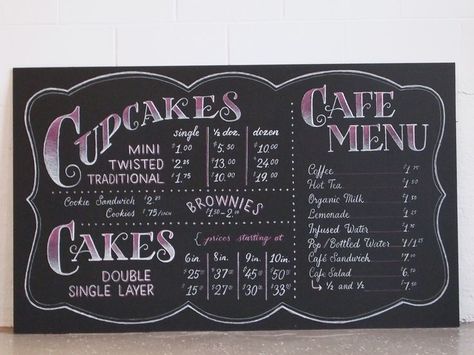 CUPCAKES
single ½ doz. dozen
MINI $1.00 $5.50 $10.00
TWISTED $2.25 $13.00 $24.00
TRADITIONAL $1.75 $10.00 $19.00
Cookie Sandwich $2.25
Cookies $.75/each
BROWNIES
$1.50-2.00
CAKES
{prices starting at
6in 8in 9in 10in
DOUBLE $25 $37 $45 $50
SINGLE LAYER $15 $27 $30 $33
CAFE MENU
Coffee $1.75
Hot Tea $1.50
Organic Milk $1.50
Lemonade $1.25
Infused Water $1
Pop/Bottled Water $1/1.25
Café Sandwich $7
Cafe Salad $6.50
↳ ½ and ½ $7.50